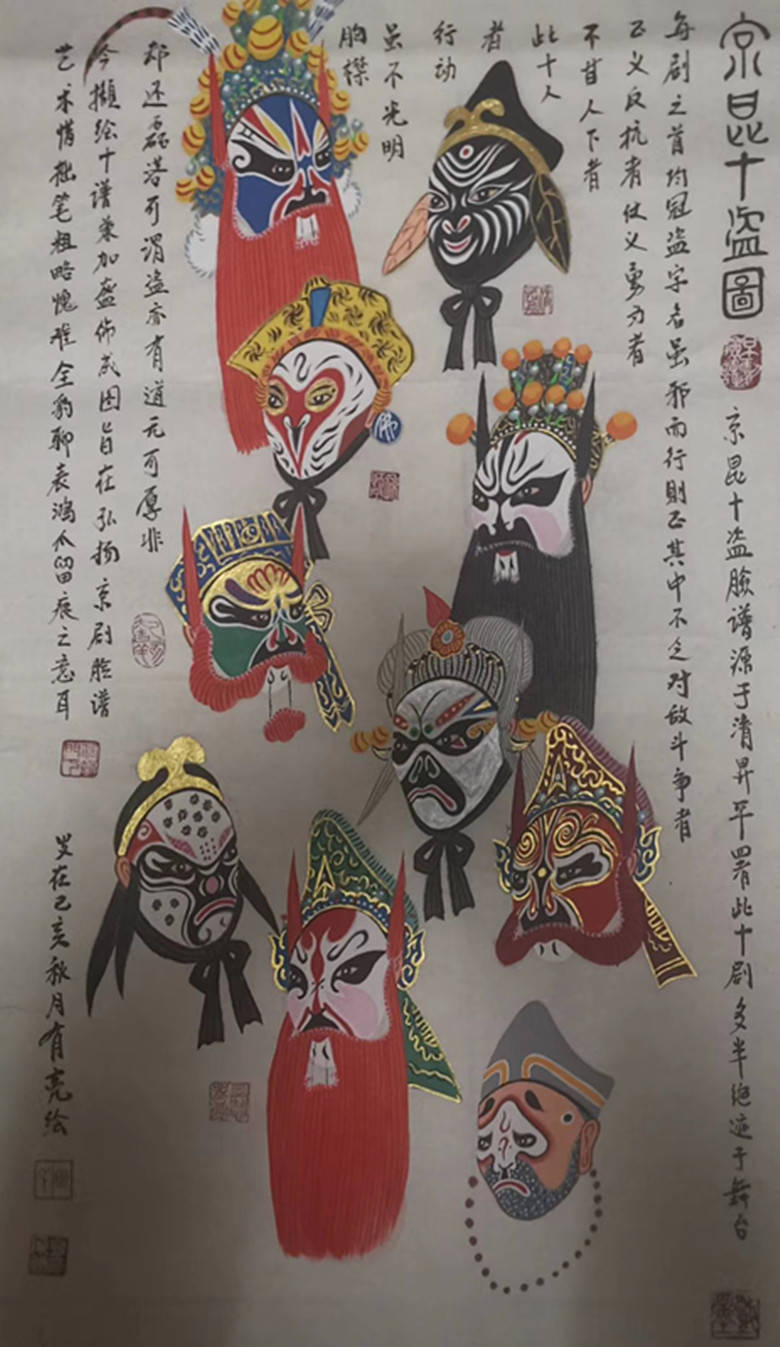 京昆十盗圖
京昆十盗臉譜源于清昇平署此十剧多半绝迹于舞台
每剧之首均冠盗字名虽邪而行則正其中不乏对敌斗争者
正义反抗者仗义勇为者
不甘人下者
此十人
者
行动
虽不光明
胸襟
却还磊落可谓盗亦有道无可厚非
今撷绘十谱兼加盔饰成图旨在弘扬京剧脸谱
艺术惜拙笔粗略愧难全豹聊表鴻爪留痕之意耳
岁在己亥秋月有亮绘
佛